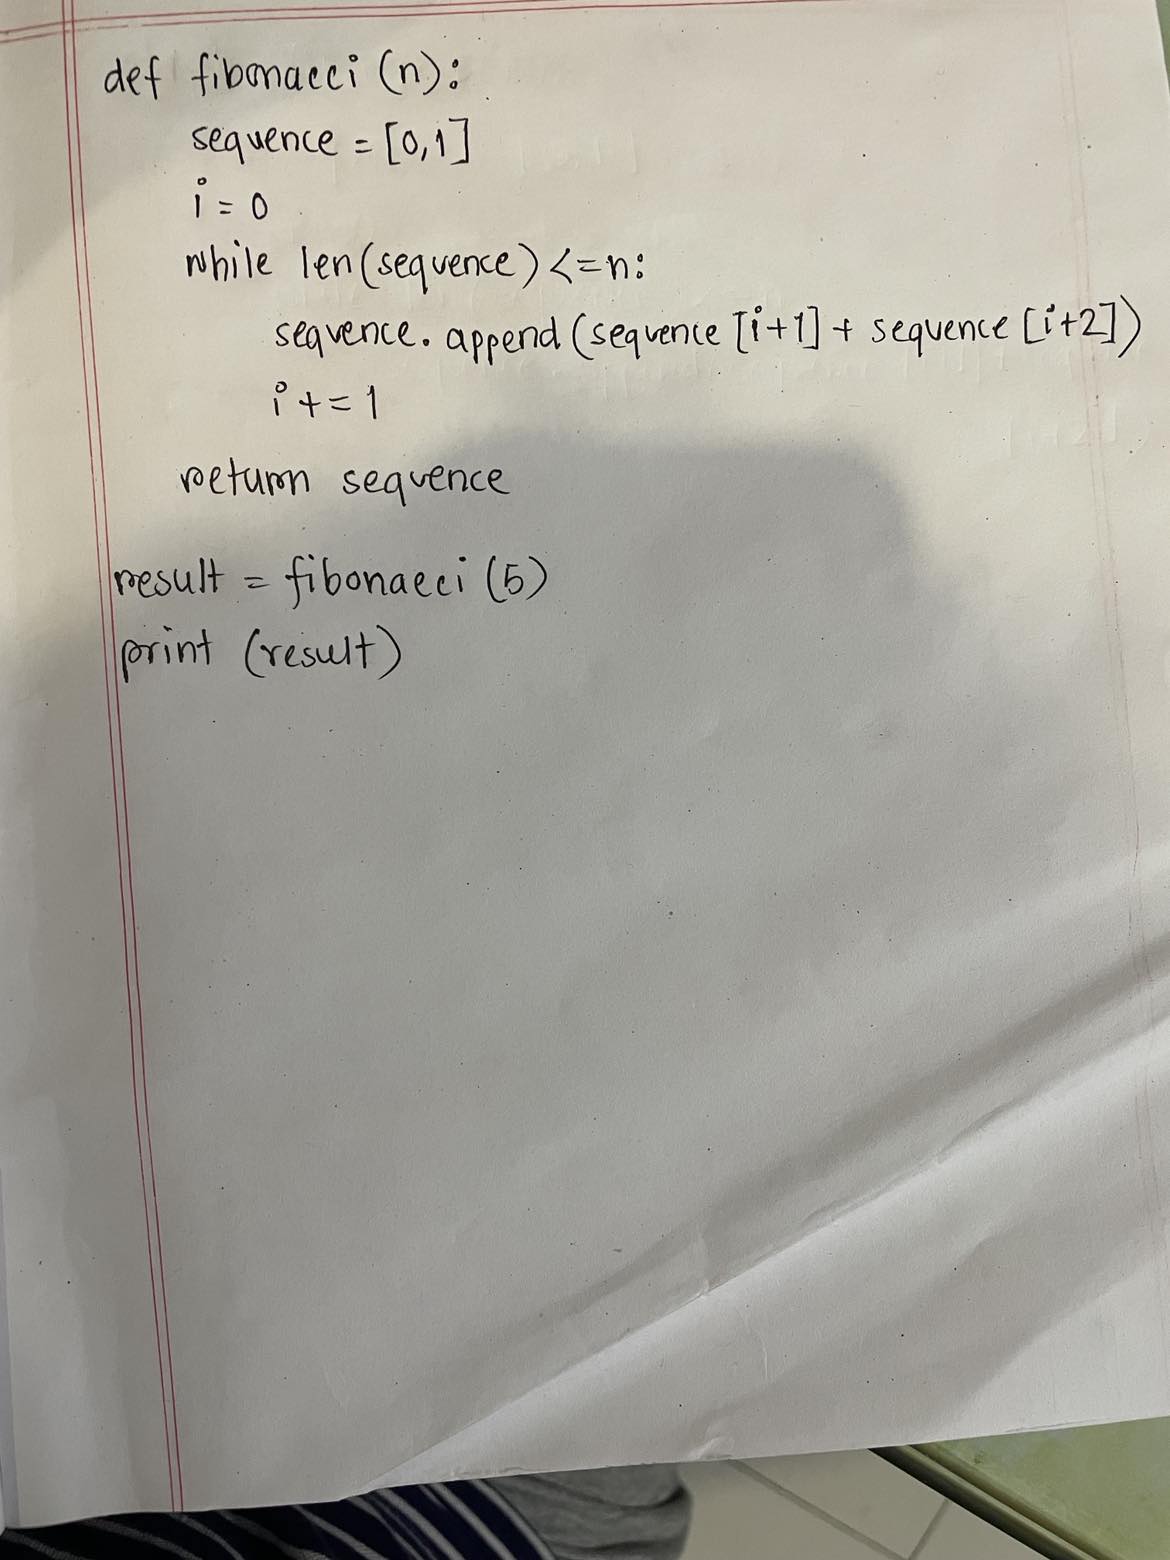 def fibonacci (n):
sequence = [0,1]
i = 0
while len(sequence) <=n:
sequence. append (sequence [i+1] + sequence [i+2])
i += 1
return sequence
result = fibonacci (5)
print (result)